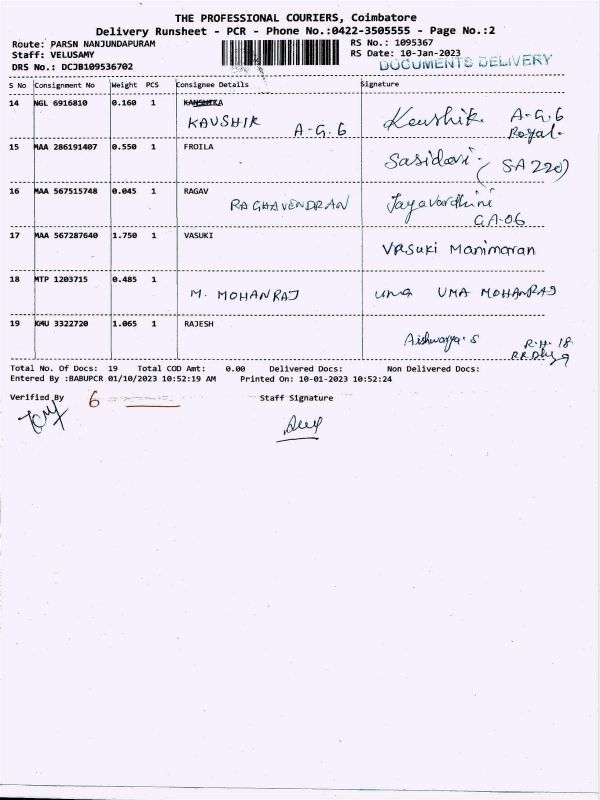 THE PROFESSIONAL COURIERS, Coimbatore
Delivery Runsheet - PCR - Phone No.:0422-3505555 - Page No.:2
Route: PARSN NANJUNDAPURAM
Staff: VELUSAMY
DRS No.: DCJB109536702
RS No.: 1095367
RS Date: 10-Jan-2023
DOCUMENTS DELIVERY
S No Consignment No Weight PCS Consignee Details Signature
14 NGL 6916810 0.160 1
KAUSHIK A-G.6 Kaushik. A-G.6
Royal.
15 MAA 286191407 0.550 1 FROILA
Sasidevi (SA 220)
16 MAA 567515748 0.045 1 RAGAV
RAGHAVENDRAN Jayavardhini
GA-06
17 MAA 567287640 1.750 1 VASUKI
Vasuki Manimaran
18 MTP 1203715 0.485 1
M. MOHANRAJ uma UMA MOHANRAJ
19 KMU 3322720 1.065 1 RAJESH
Aishwarya. S R.H. 18
Total No. Of Docs: 19 Total COD Amt: 0.00 Delivered Docs: Non Delivered Docs:
Entered By :BABUPCR 01/10/2023 10:52:19 AM Printed On: 10-01-2023 10:52:24
Verified By 6 Staff Signature